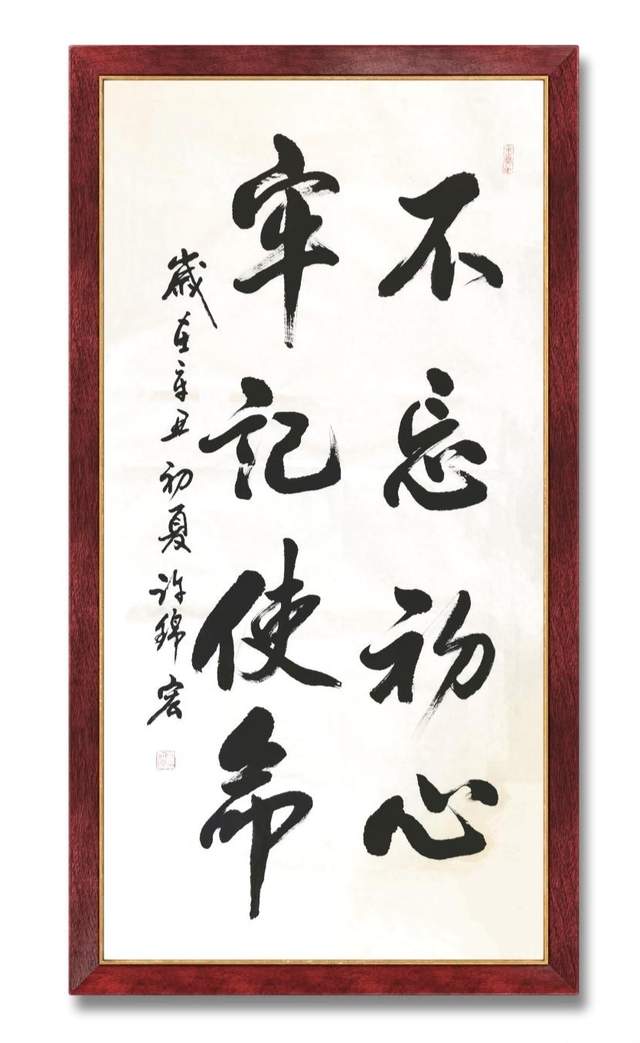 不忘初心
牢记使命
歲在辛丑初夏许锦宏